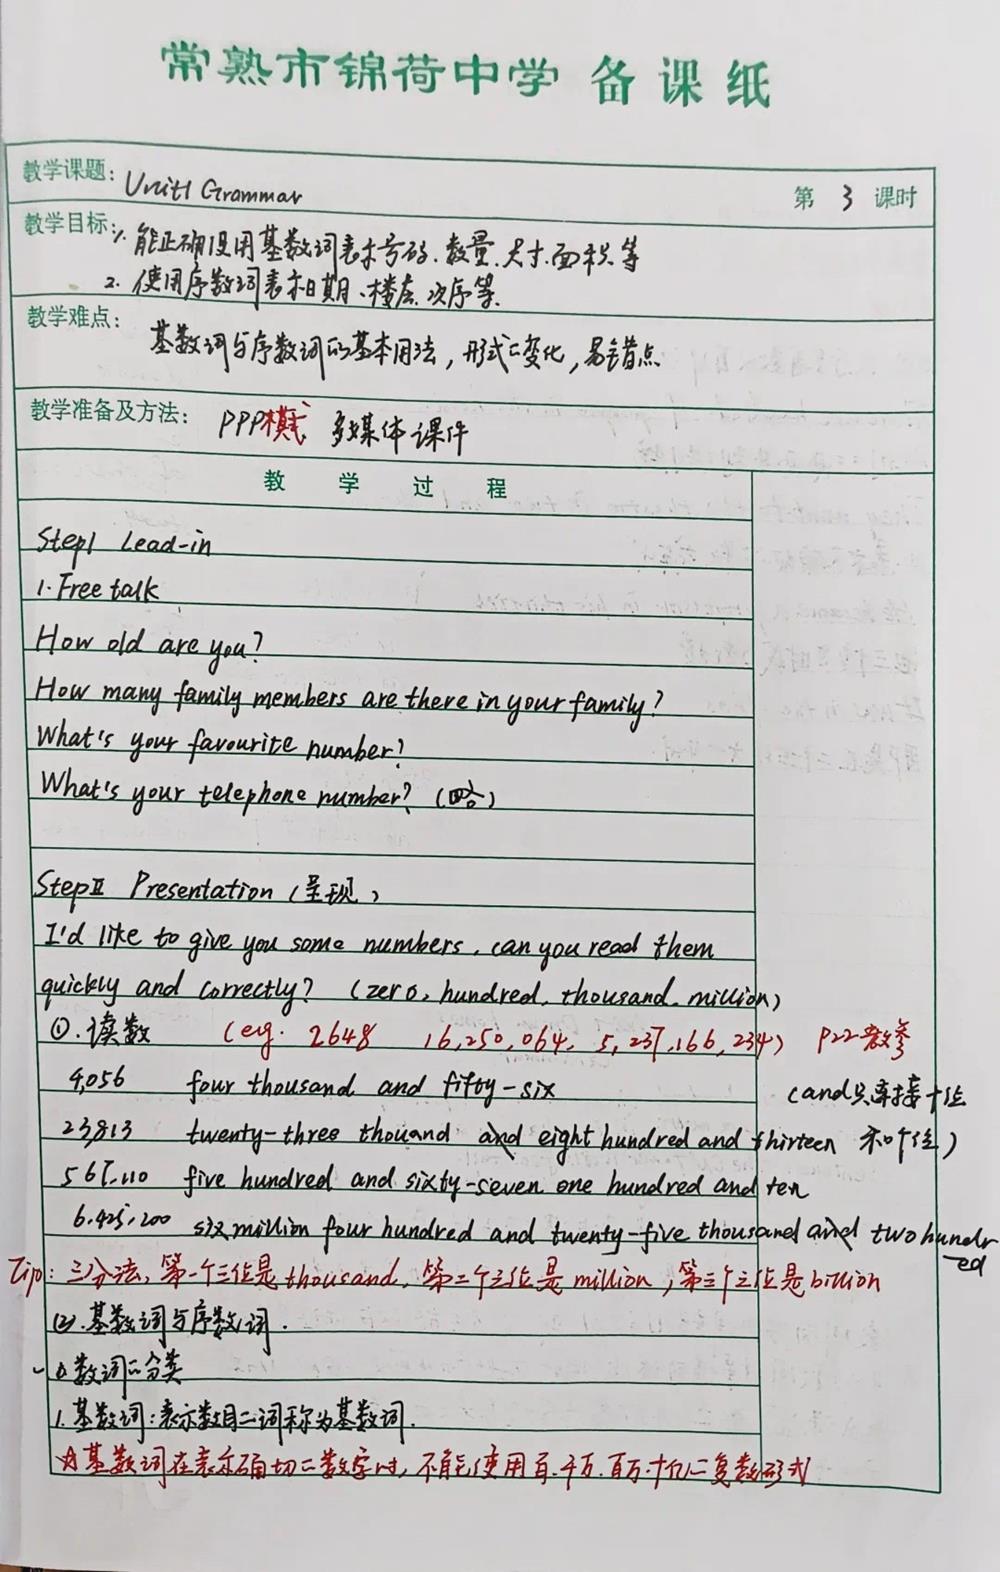 常熟市锦荷中学 备课纸
教学课题: Unit1 Grammar 第 3 课时
教学目标: 1. 能正确使用基数词表示号码、数量、尺寸、面积等
2. 使用序数词表示日期、楼层、次序等.
教学难点: 基数词与序数词的基本用法, 形式的变化, 易错点
教学准备及方法: PPP模式 多媒体课件
教 学 过 程
Step1 Lead-in
1. Free talk
How old are you?
How many family members are there in your family?
What's your favourite number?
What's your telephone number? (略)
StepⅡ Presentation (呈现)
I'd like to give you some numbers, can you read them
quickly and correctly? (zero, hundred, thousand, million)
①. 读数 (eg. 2648 16,250,064, 5,237,166,234) P22教参
4,056 four thousand and fifty-six (and只连接十位
23,813 twenty-three thouand and eight hundred and thirteen 和个位)
567,110 five hundred and sixty-seven one hundred and ten
6,425,200 six million four hundred and twenty-five thousand and two hundr
ed
Tip: 三分法, 第一个三位是thousand, 第二个三位是million, 第三个三位是billion
(2). 基数词与序数词.
数词的分类
1. 基数词: 表示数目的词称为基数词.
☆基数词在表示确切的数字时, 不能使用百、千万、百万、十亿的复数形式